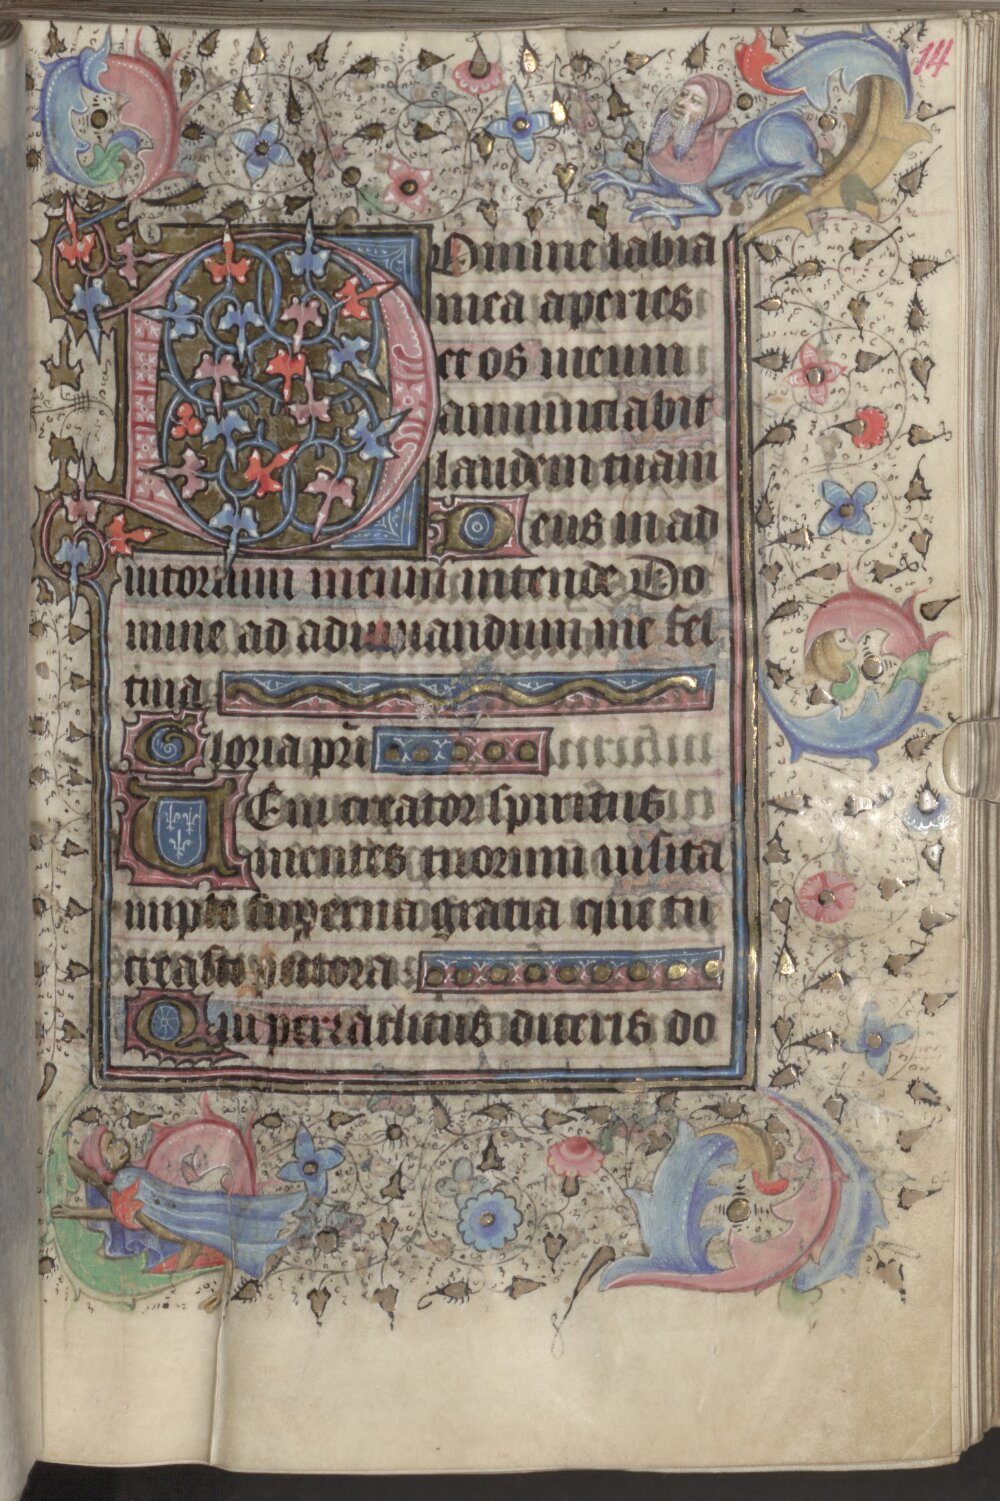 14
Domine labia
mea aperies
et os meum
annunciabit
laudem tuam
Deus in ad
iutorium meum intende Do
mine ad adiuuandum me fes
tina
Gloria pr̄i
Ueni creator spiritus
mentes tuorum uisita
imple superna gratia que tu
creasti pectora
Qui paraclitus diceris do